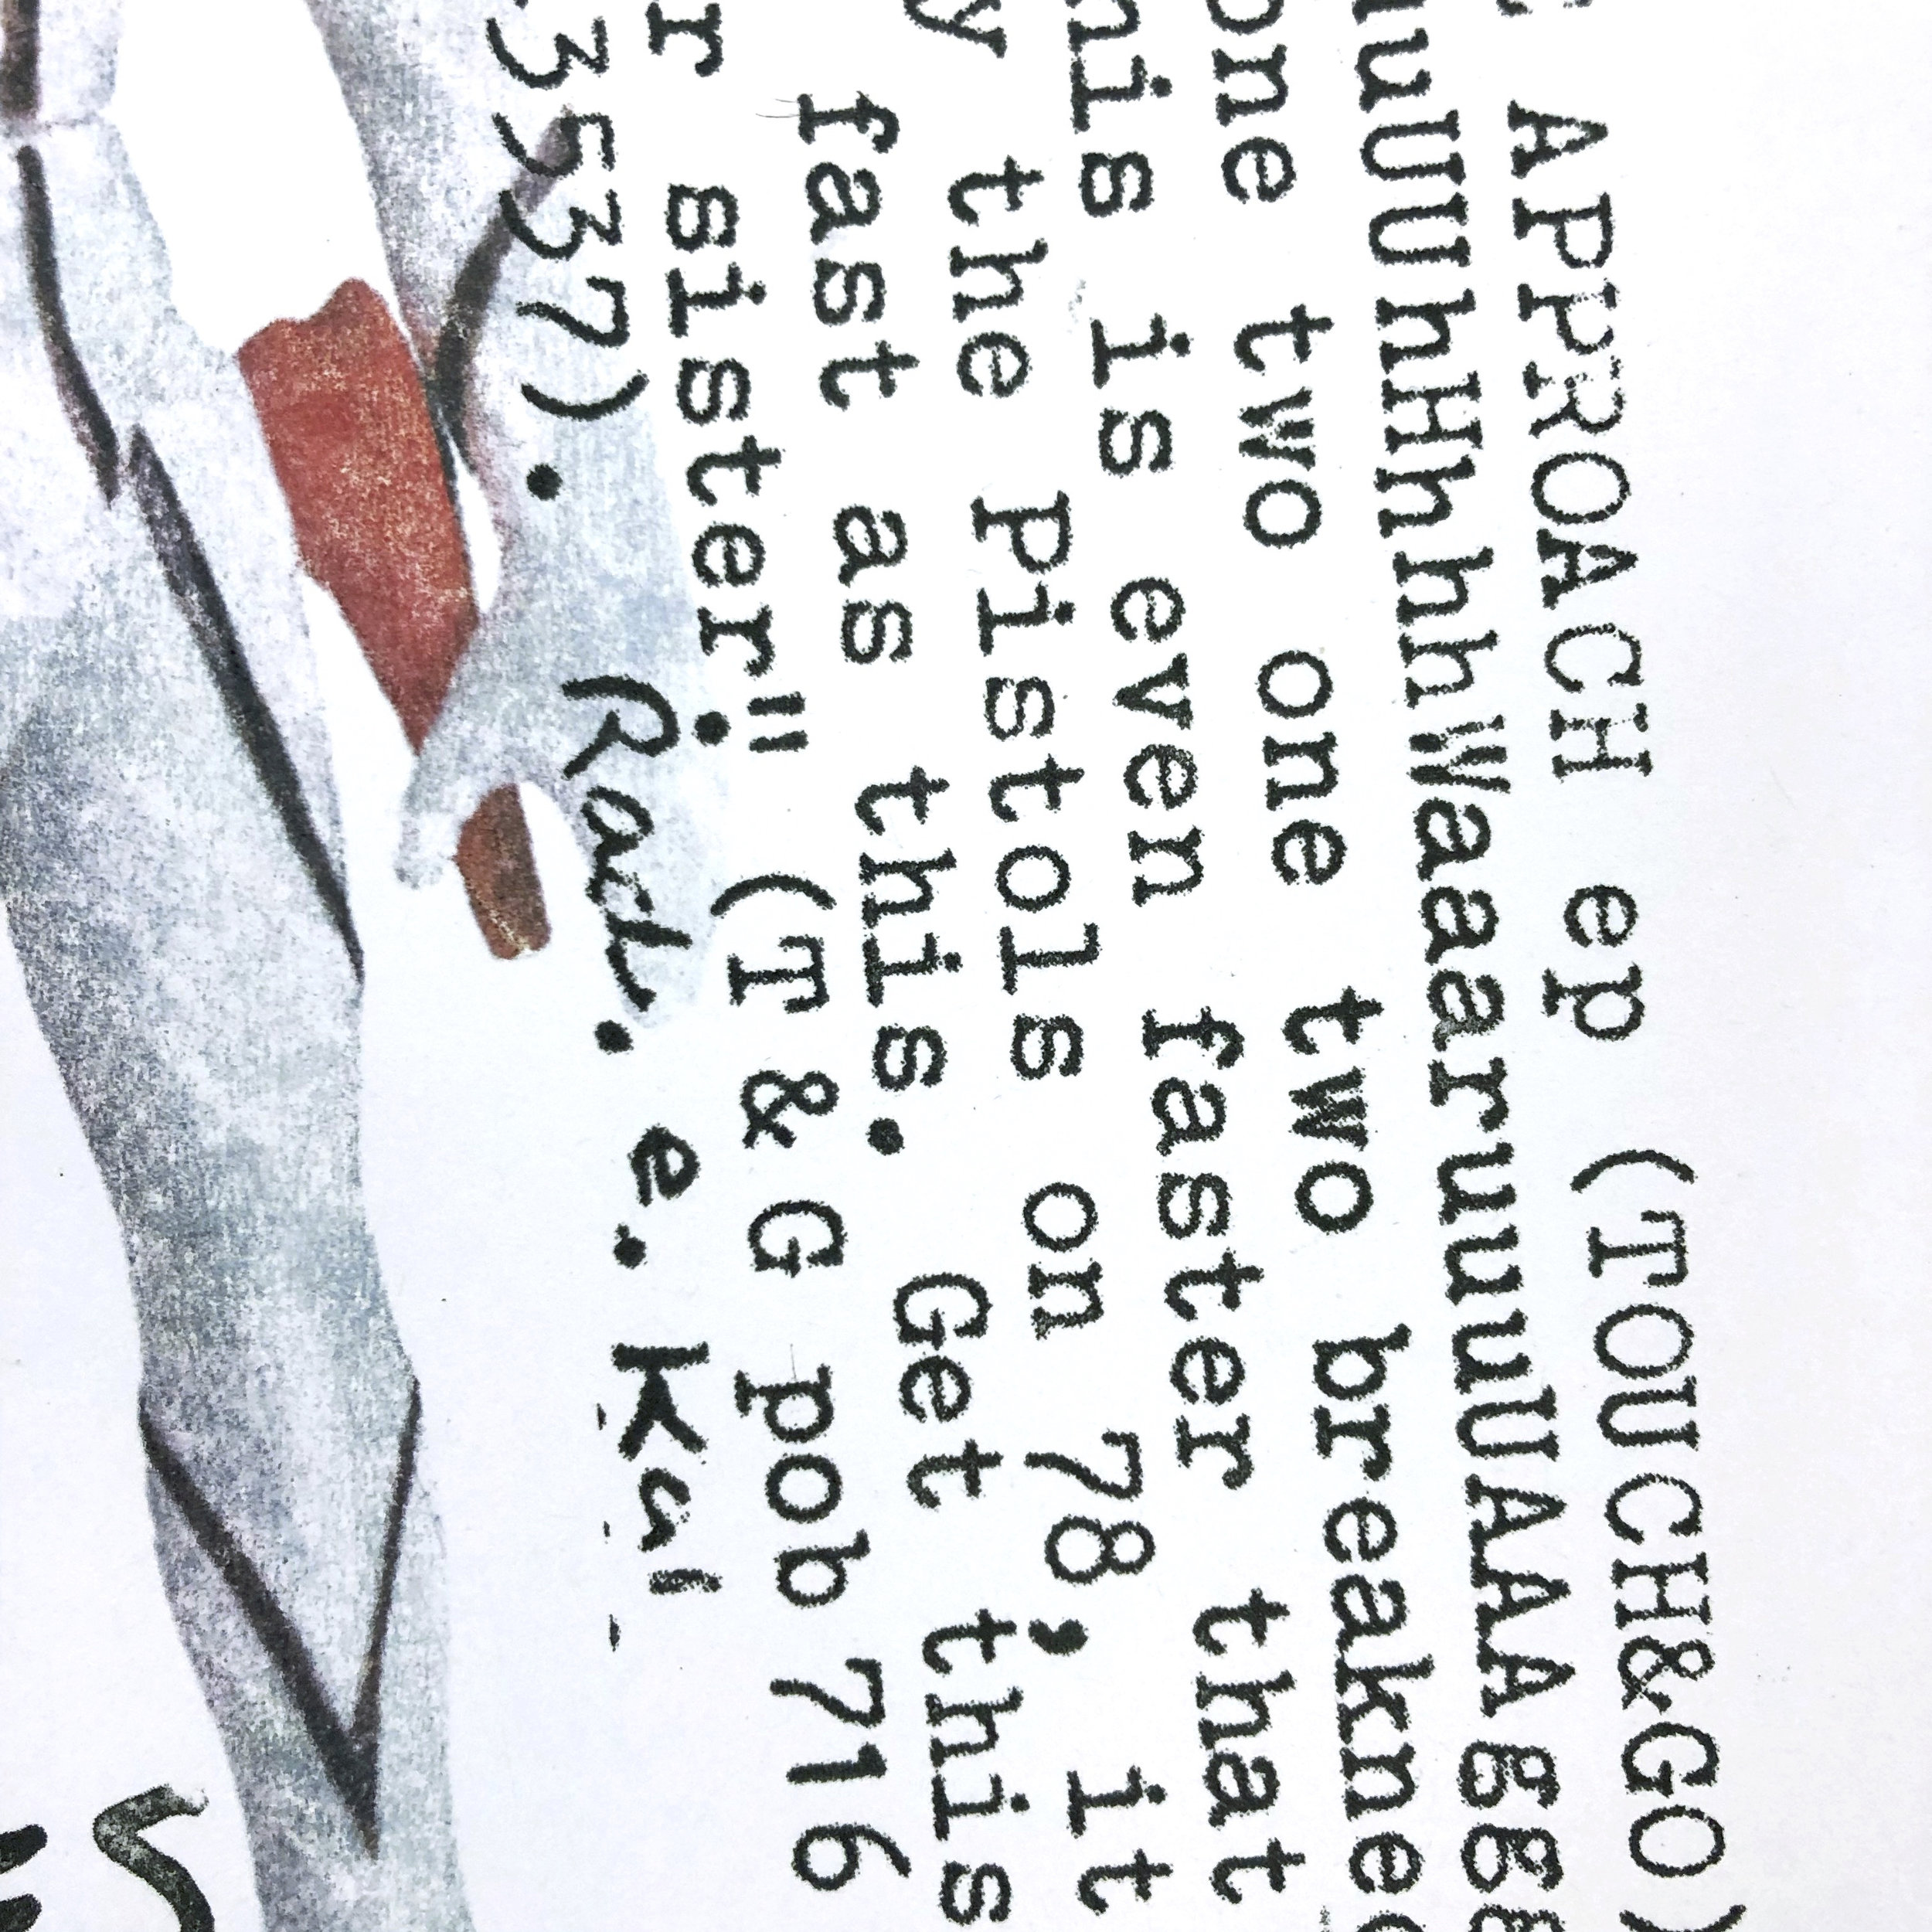 APPROACH ep (TOUCH&GO)
uuUUUhhHhhhhWaaaaruuuuUAAAggg
one two one two breakne
his is even faster that
y the Pistols on 78, it
fast as this. Get this
r sister!" (T & G pob 716
3537).